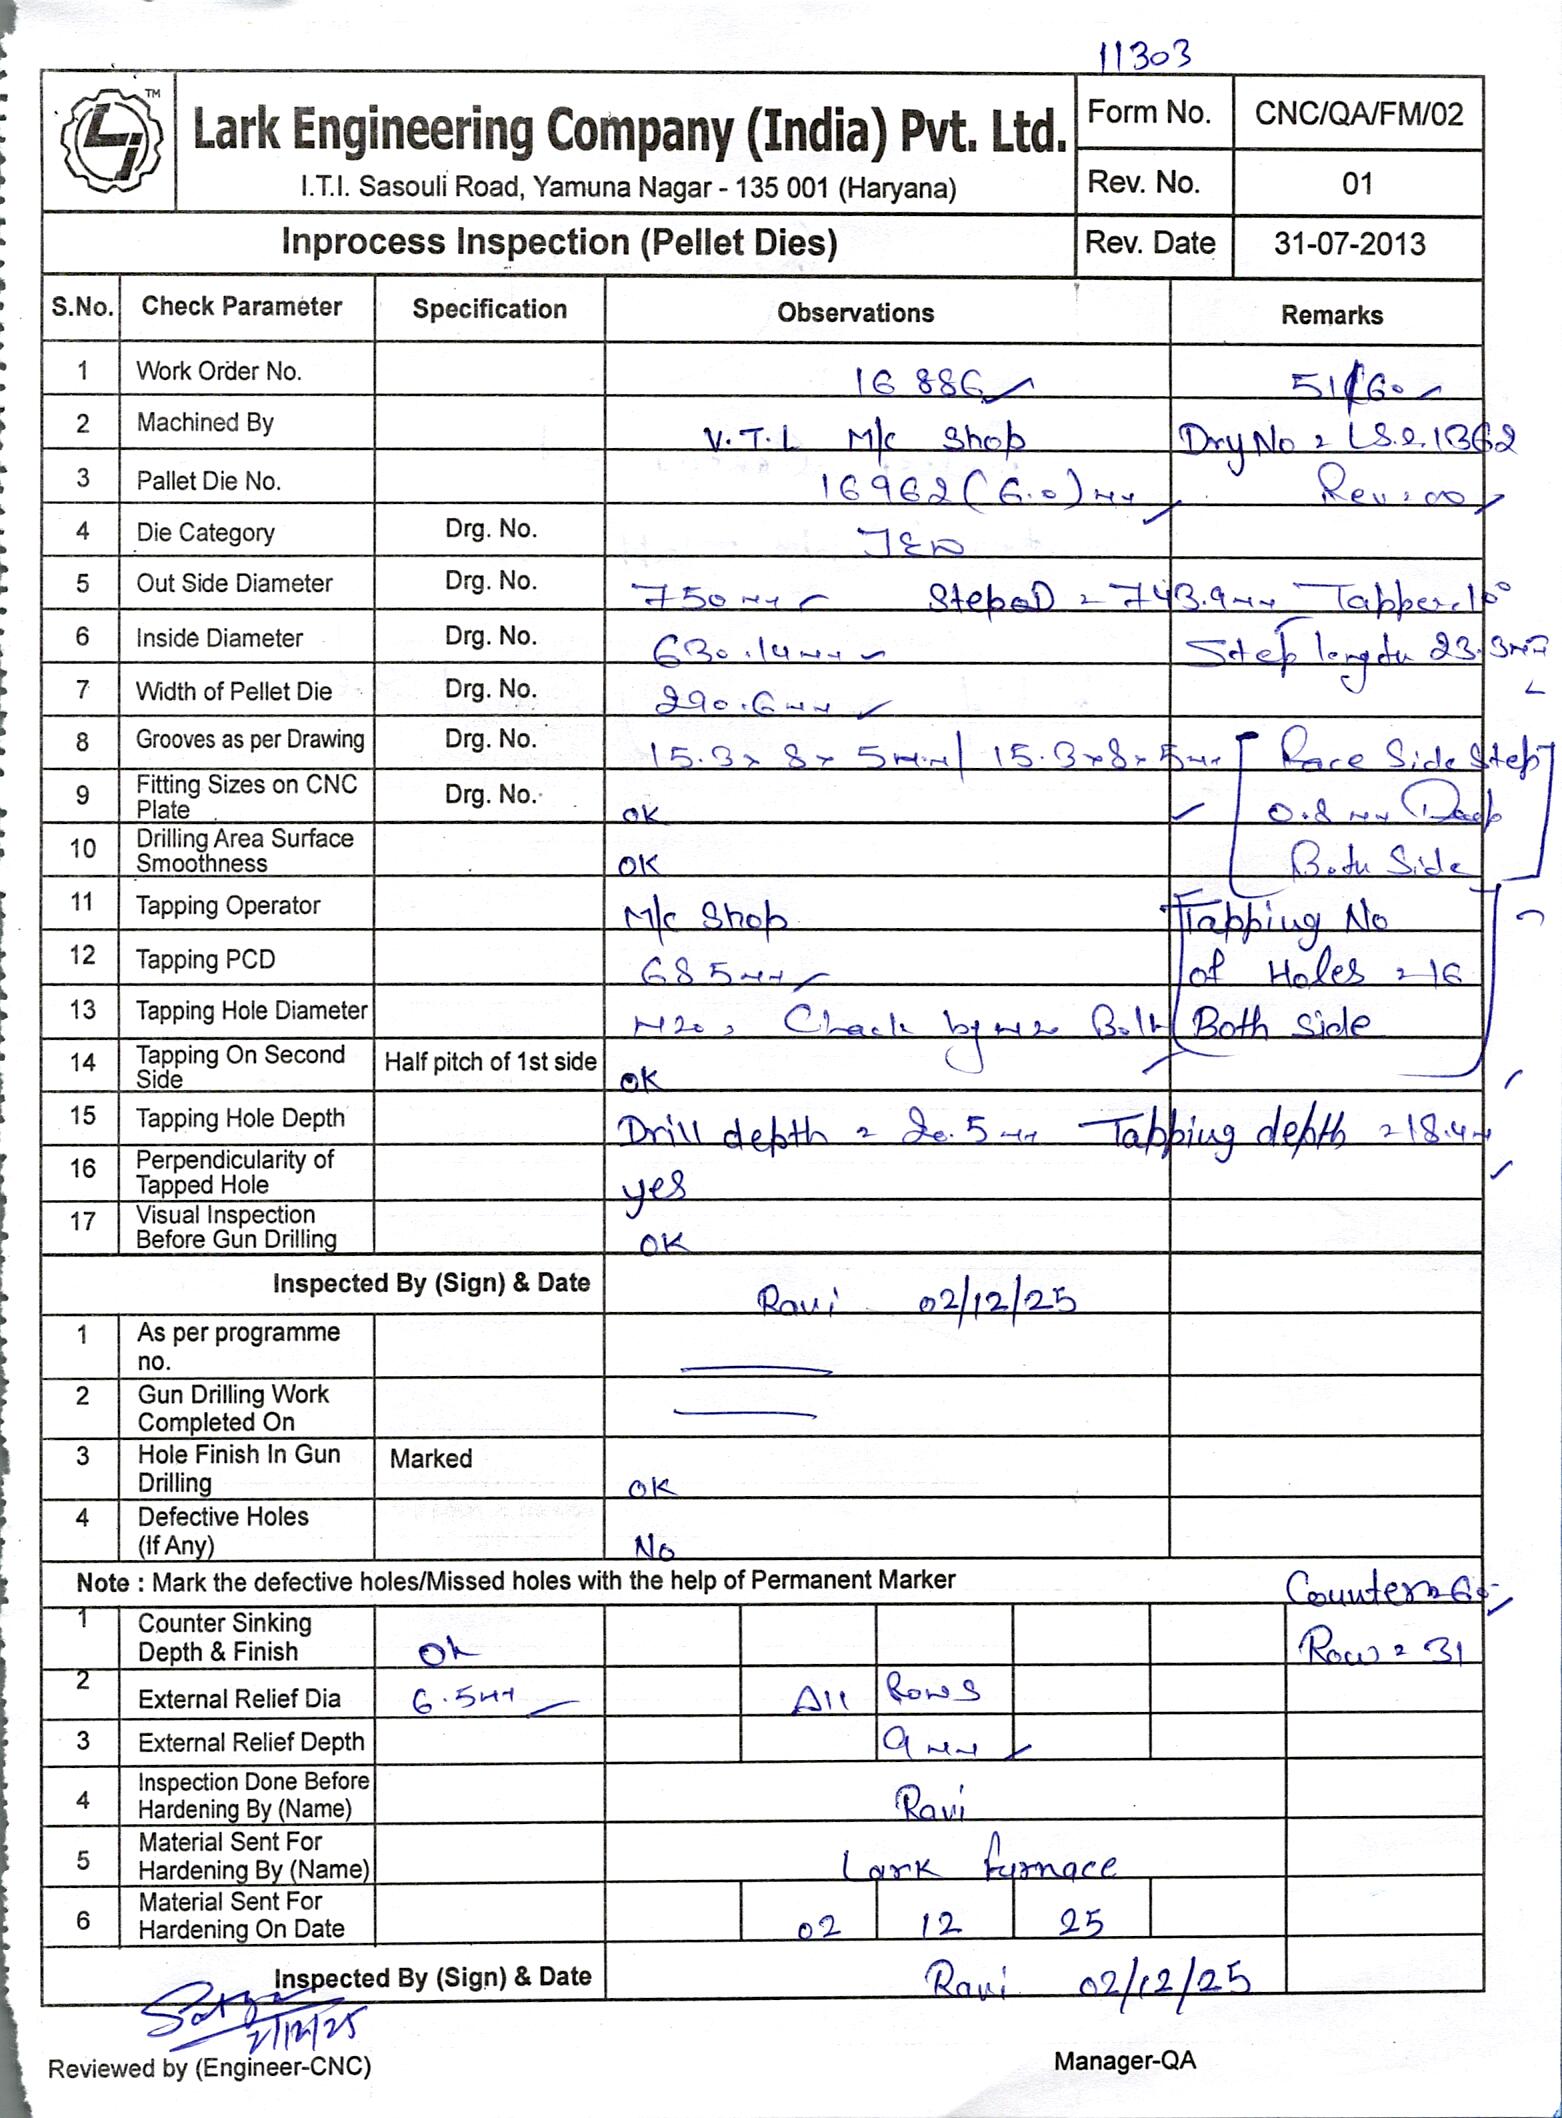 11303
TM
Lark Engineering Company (India) Pvt. Ltd.
I.T.I. Sasouli Road, Yamuna Nagar - 135 001 (Haryana)
Form No. CNC/QA/FM/02
Rev. No. 01
Inprocess Inspection (Pellet Dies) Rev. Date 31-07-2013
S.No. Check Parameter Specification Observations Remarks
1 Work Order No. 16886 51/60
2 Machined By V.T.L M/c Shop
3 Pallet Die No. 16962 (6.0) mm Rev: 00
4 Die Category Drg. No.
5 Out Side Diameter Drg. No. 750 mm Step OD = 743.9 mm Tapper 10°
6 Inside Diameter Drg. No. 630.14 mm Step length 23.3 mm
7 Width of Pellet Die Drg. No. 290.6 mm
8 Grooves as per Drawing Drg. No. 15.3 x 8 x 5 mm / 15.3 x 8 x 5 mm Race Side Step
9 Fitting Sizes on CNC Plate Drg. No. OK 0.8 mm Deep
10 Drilling Area Surface Smoothness OK Both Side
11 Tapping Operator M/c Shop Tapping No
12 Tapping PCD 685 mm of Holes = 16
13 Tapping Hole Diameter M20, Check by M20 Bolt Both Side
14 Tapping On Second Side Half pitch of 1st side OK
15 Tapping Hole Depth Drill depth = 20.5 mm Tapping depth = 18.4 mm
16 Perpendicularity of Tapped Hole yes
17 Visual Inspection Before Gun Drilling OK
Inspected By (Sign) & Date Ravi 02/12/25
1 As per programme no.
2 Gun Drilling Work Completed On
3 Hole Finish In Gun Drilling Marked OK
4 Defective Holes (If Any) No
Note : Mark the defective holes/Missed holes with the help of Permanent Marker
1 Counter Sinking Depth & Finish Ok Row = 31
2 External Relief Dia 6.5 mm All Rows
3 External Relief Depth 9 mm
4 Inspection Done Before Hardening By (Name) Ravi
5 Material Sent For Hardening By (Name) Lark furnace
6 Material Sent For Hardening On Date 02 12 25
Inspected By (Sign) & Date Ravi 02/12/25
2/12/25
Reviewed by (Engineer-CNC) Manager-QA